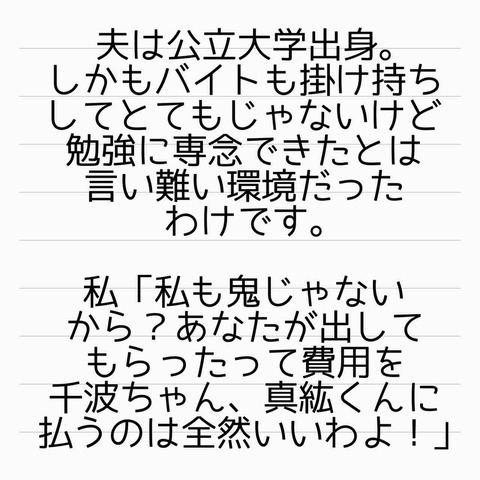 夫は公立大学出身。
しかもバイトも掛け持ち
してとてもじゃないけど
勉強に専念できたとは
言い難い環境だった
わけです。
私「私も鬼じゃない
から？あなたが出して
もらったって費用を
千波ちゃん、真紘くんに
払うのは全然いいわよ！」